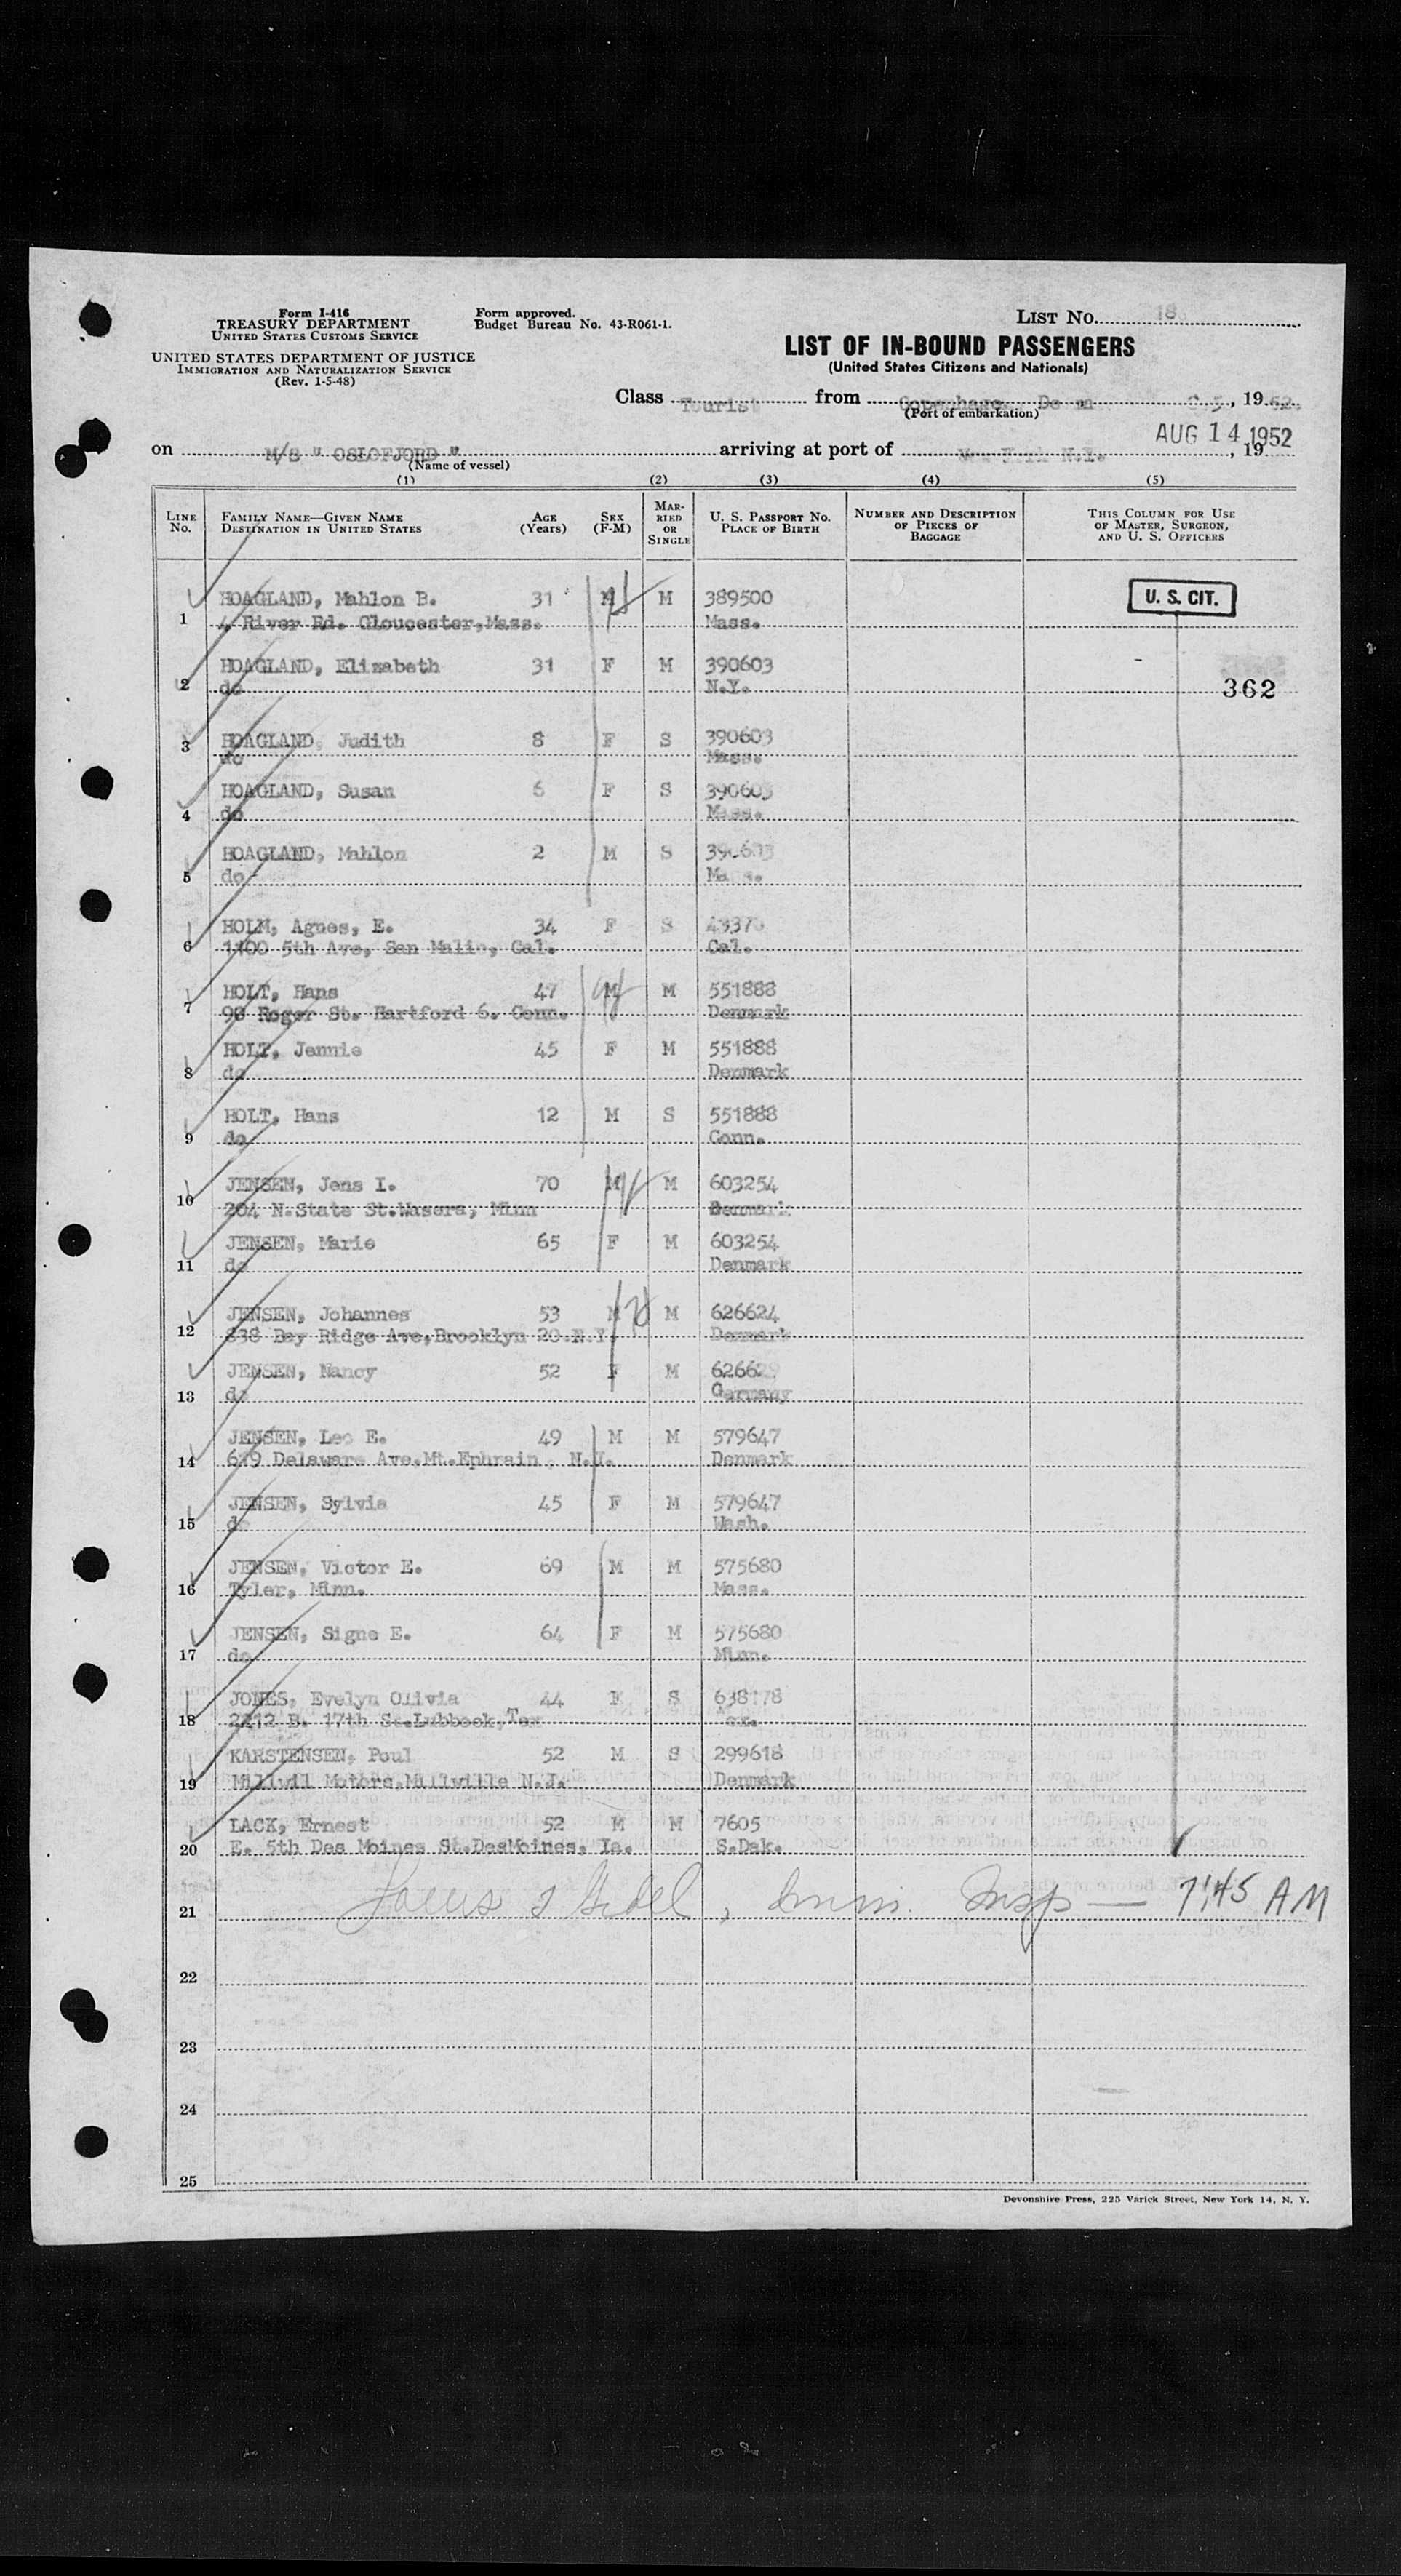 Form I-416
TREASURY DEPARTMENT
UNITED STATES CUSTOMS SERVICE
UNITED STATES DEPARTMENT OF JUSTICE
IMMIGRATION AND NATURALIZATION SERVICE
(Rev. 1-5-48)
Form approved.
Budget Bureau No. 43-R061-1.
LIST No. 18
LIST OF IN-BOUND PASSENGERS
(United States Citizens and Nationals)
Class Tourist from , 19 52.
(Port of embarkation)
AUG 14 1952
on M/S " OSLOFJORD " arriving at port of New York N.Y. , 19
(Name of vessel)
(1) (2) (3) (4) (5)
LINE No. FAMILY NAME—GIVEN NAME DESTINATION IN UNITED STATES AGE (Years) SEX (F-M) MARRIED OR SINGLE U. S. PASSPORT NO. PLACE OF BIRTH NUMBER AND DESCRIPTION OF PIECES OF BAGGAGE THIS COLUMN FOR USE OF MASTER, SURGEON, AND U. S. OFFICERS
HOAGLAND, Mahlon B. 31 M M 389500 U. S. CIT.
1 4 River Rd. Gloucester,Mass. Mass.
HOAGLAND, Elizabeth 31 F M 390603
2 do N.Y. 362
3 HOAGLAND, Judith 8 F S 390603
do Mass.
HOAGLAND, Susan 6 F S 390603
4 do Mass.
HOAGLAND, Mahlon 2 M S 390603
5 do Mass.
HOLM, Agnes, E. 34 F S
6 1100 5th Ave, San Cal. Cal.
HOLT, Hans 47 M M 551888
7 90 Roger St. Hartford 6. Conn. Denmark
HOLT, Jennie 45 F M 551888
8 do Denmark
HOLT, Hans 12 M S 551888
9 do Conn.
JENSEN, Jens I. 70 M M 603254
10 204 N.State St.Wasera, Minn Denmark
JENSEN, Marie 65 F M 603254
11 do Denmark
JENSEN, Johannes 53 M M 626624
12 838 Bay Ridge Ave,Brooklyn 20.N.Y. Denmark
JENSEN, Nancy 52 F M
13 do Germany
JENSEN, Leo E. 49 M M 579647
14 Delaware Ave.Mt.Ephrain, N.J. Denmark
JENSEN, Sylvia 45 F M 579647
15 do Wash.
JENSEN, Victor E. 69 M M 575680
16 Tyler, Minn. Mass.
JENSEN, Signe E. 64 F M 575680
17 do Minn.
JONES, Evelyn Olivia 44 F S 638178
18 2212 B. 17th St.Lubbock,Tex
KARSTENSEN, Poul 52 M S 299618
19 Millvil Motors,Millville N.J. Denmark
LACK, Ernest 52 M M 7605
20 E. 5th Des Moines St.DesMoines, Ia. S.Dak.
21 Insp — 7:45 AM
22
23
24
25
Devonshire Press, 225 Varick Street, New York 14, N. Y.